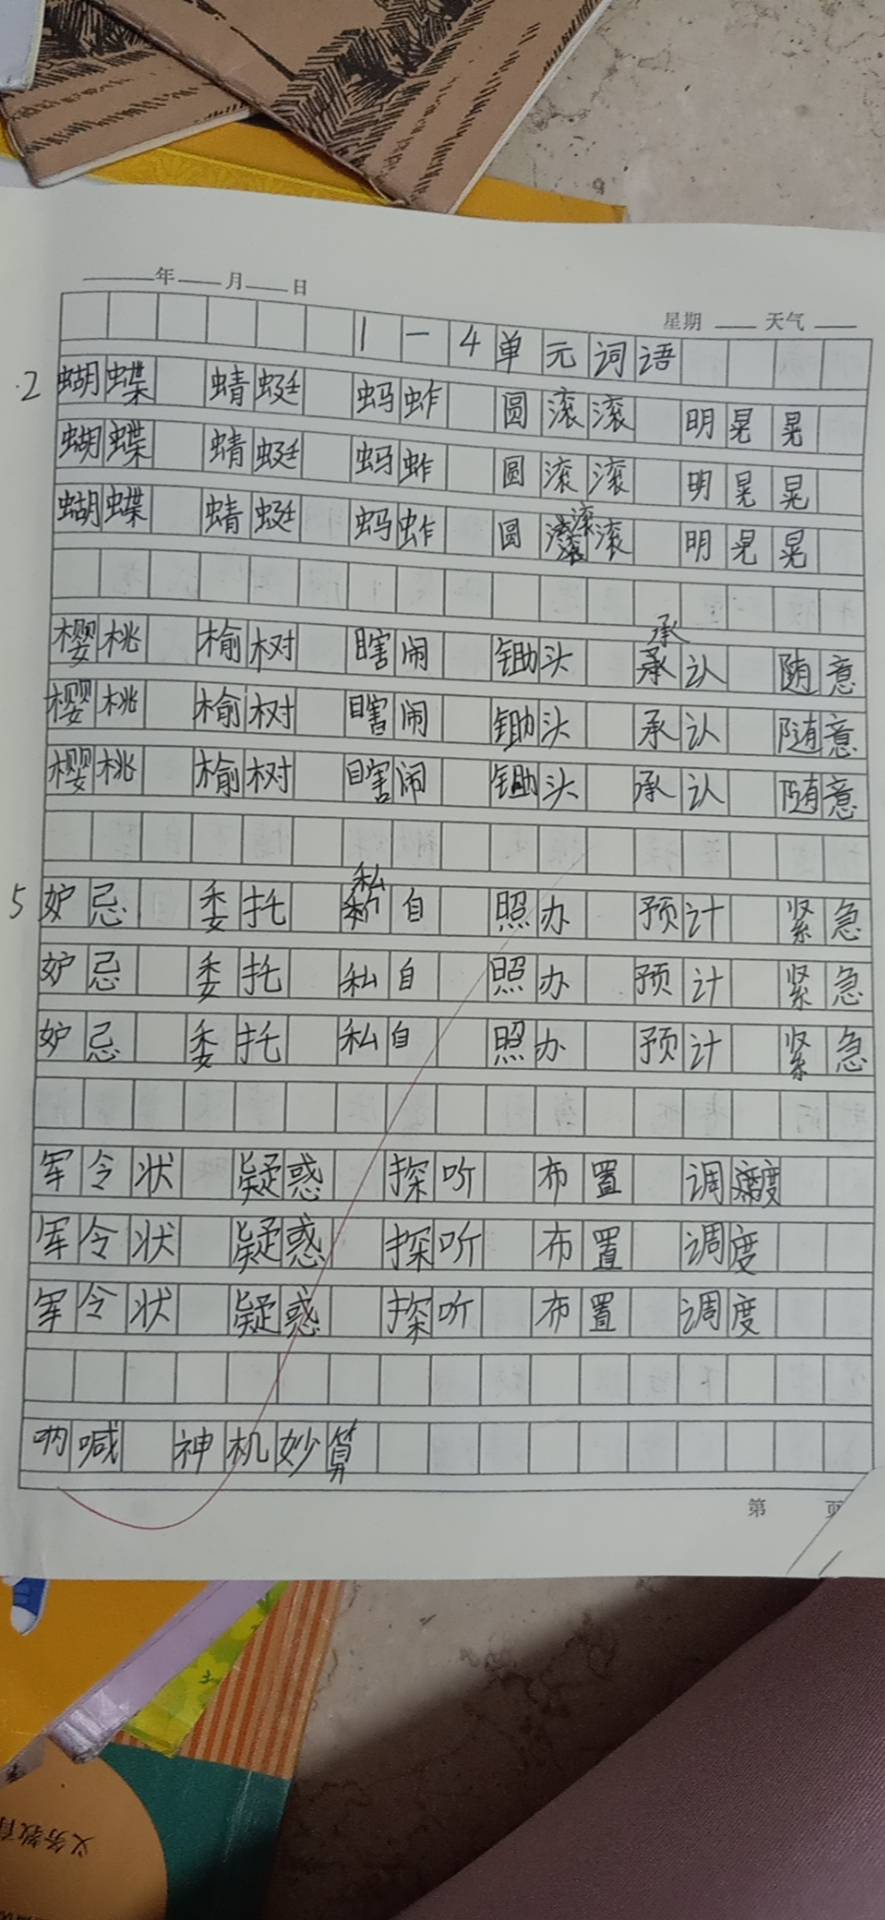 年 月 日
星期 天气
1-4单元词语
2 蝴蝶 蜻蜓 蚂蚱 圆滚滚 明晃晃
蝴蝶 蜻蜓 蚂蚱 圆滚滚 明晃晃
蝴蝶 蜻蜓 蚂蚱 圆滚滚 明晃晃
樱桃 榆树 瞎闹 锄头 承认 随意
樱桃 榆树 瞎闹 锄头 承认 随意
樱桃 榆树 瞎闹 锄头 承认 随意
5 妒忌 委托 私自 照办 预计 紧急
妒忌 委托 私自 照办 预计 紧急
妒忌 委托 私自 照办 预计 紧急
军令状 疑惑 探听 布置 调度
军令状 疑惑 探听 布置 调度
军令状 疑惑 探听 布置 调度
呐喊 神机妙算
第 页
义务教育